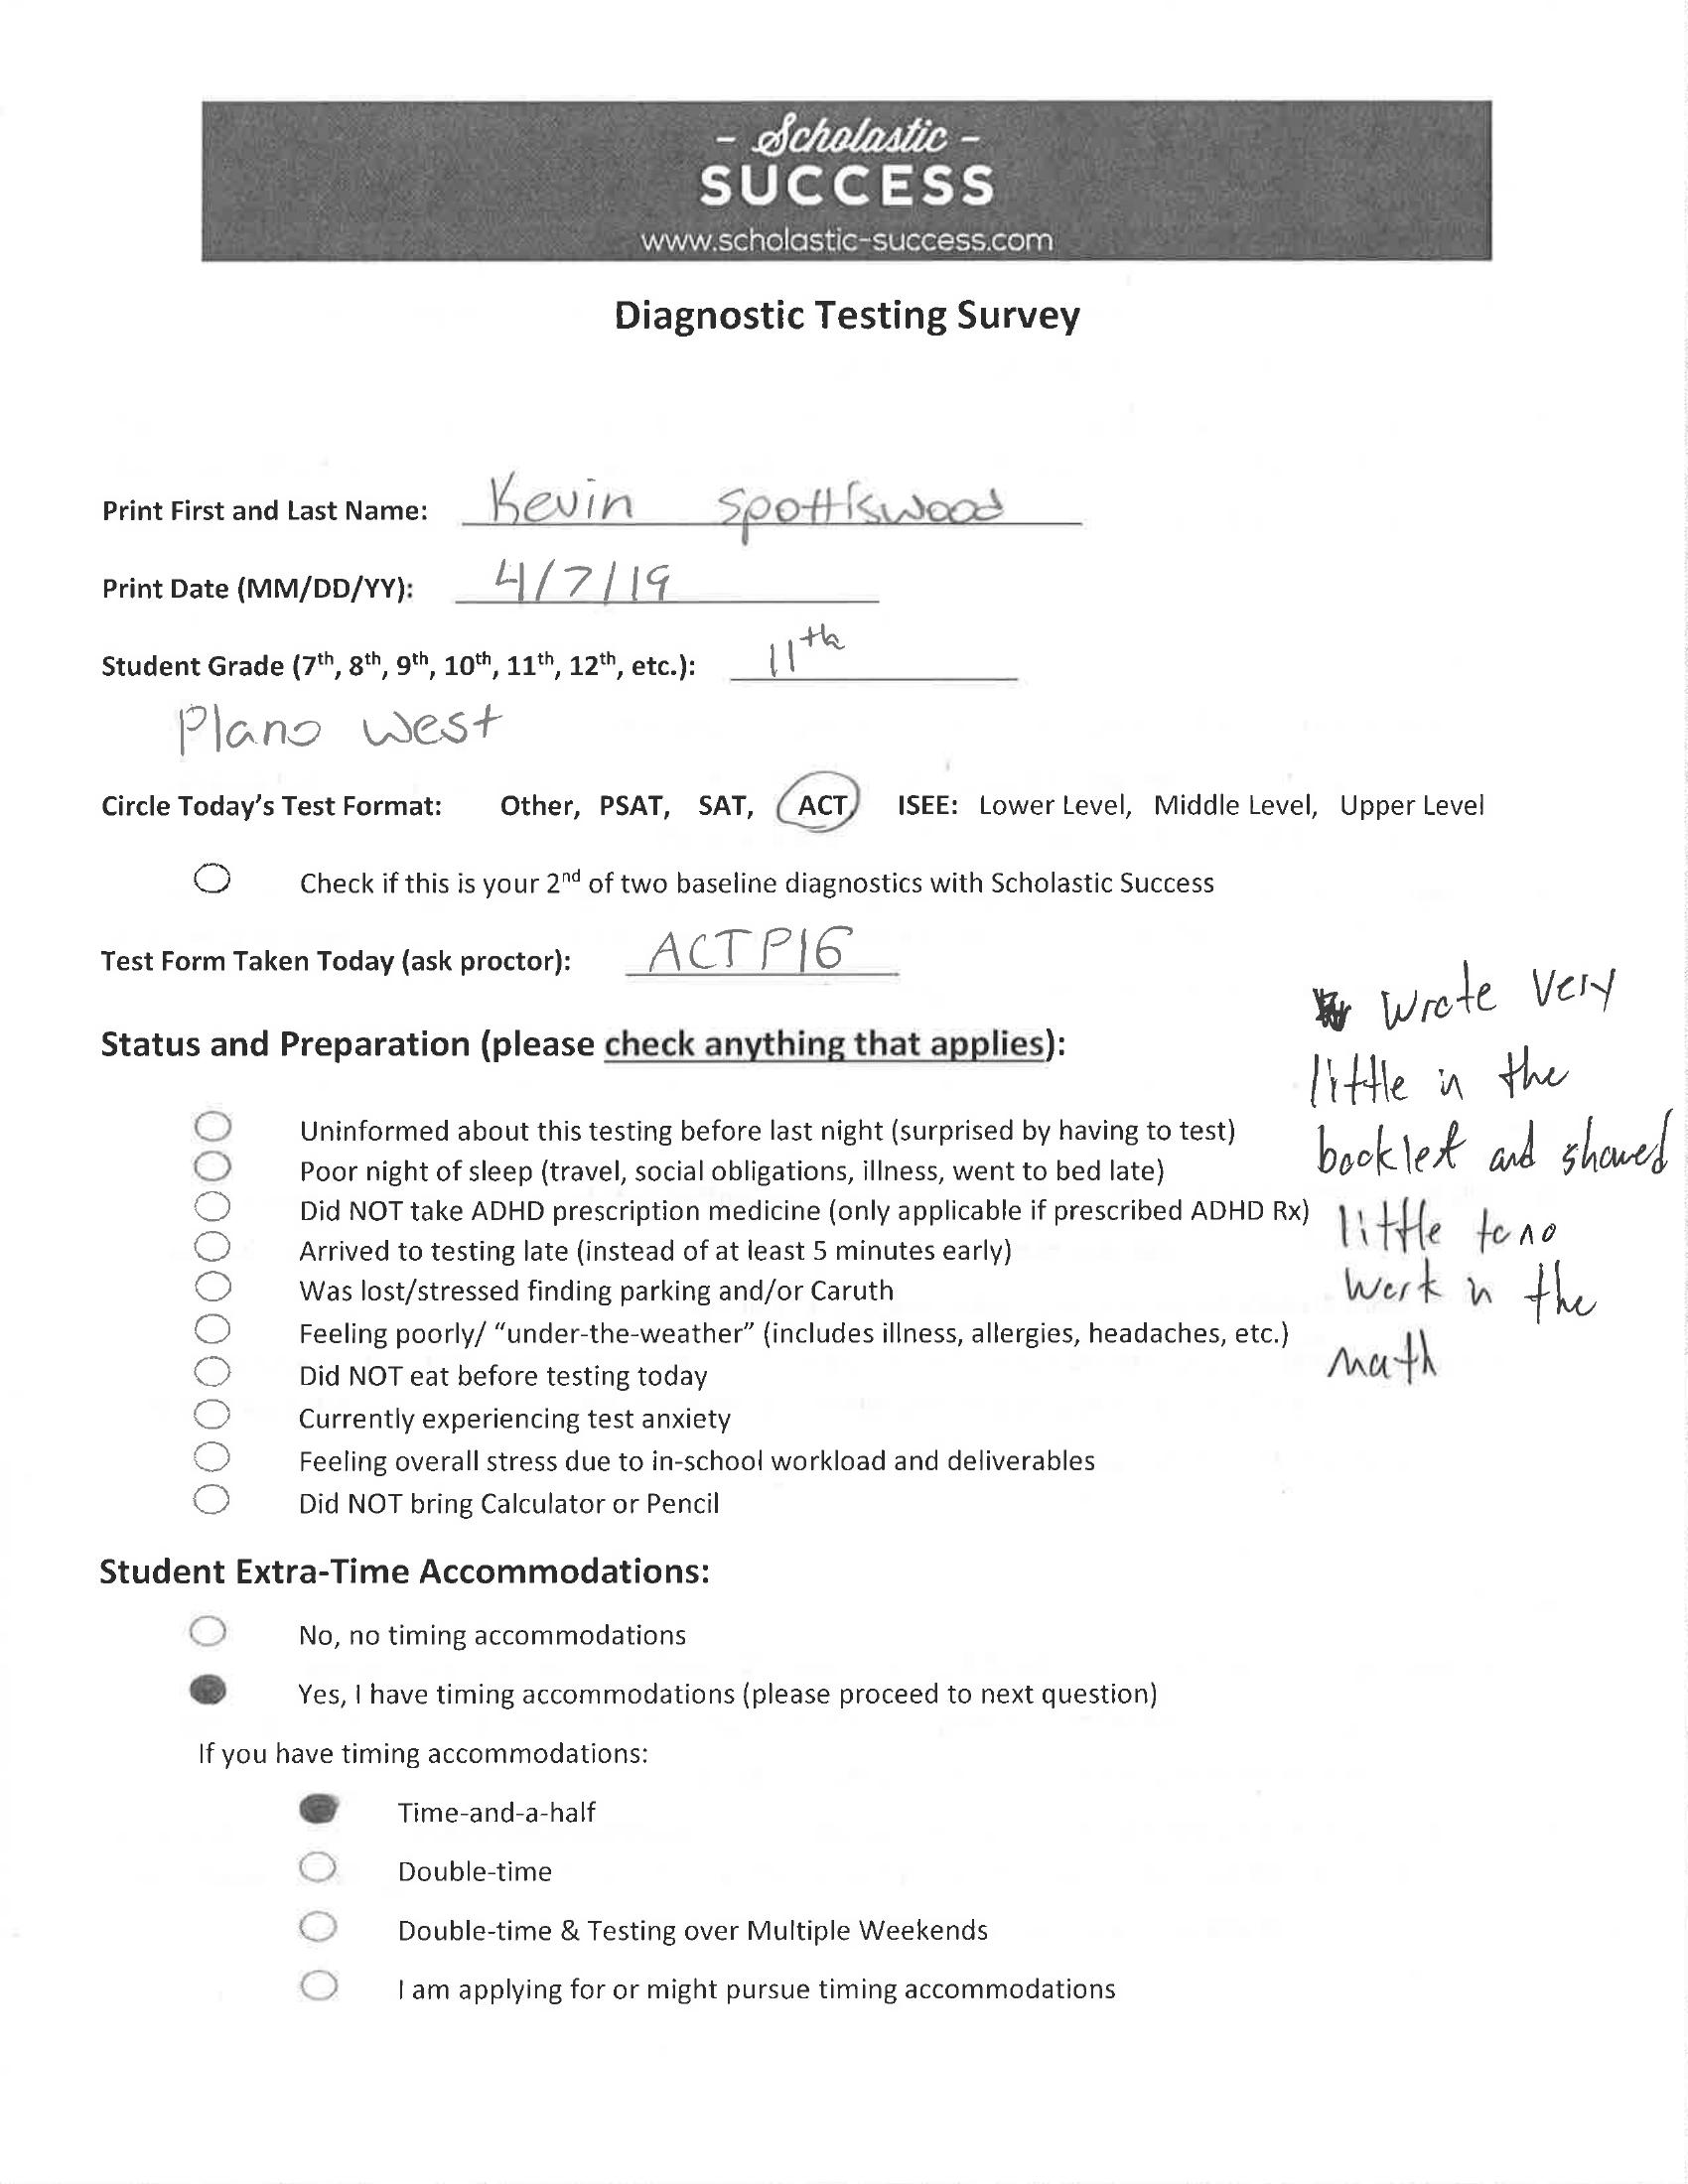 - Scholastic -
SUCCESS
www.scholastic-success.com
Diagnostic Testing Survey
Print First and Last Name: Kevin Spottiswood
Print Date (MM/DD/YY): 4/7/19
Student Grade (7th, 8th, 9th, 10th, 11th, 12th, etc.): 11th
Plano West
Circle Today's Test Format: Other, PSAT, SAT, ACT, ISEE: Lower Level, Middle Level, Upper Level
Check if this is your 2nd of two baseline diagnostics with Scholastic Success
Test Form Taken Today (ask proctor): ACT P16
Wrote very
little in the
booklet and showed
little to no
work in the
math
Status and Preparation (please check anything that applies):
Uninformed about this testing before last night (surprised by having to test)
Poor night of sleep (travel, social obligations, illness, went to bed late)
Did NOT take ADHD prescription medicine (only applicable if prescribed ADHD Rx)
Arrived to testing late (instead of at least 5 minutes early)
Was lost/stressed finding parking and/or Caruth
Feeling poorly/ "under-the-weather" (includes illness, allergies, headaches, etc.)
Did NOT eat before testing today
Currently experiencing test anxiety
Feeling overall stress due to in-school workload and deliverables
Did NOT bring Calculator or Pencil
Student Extra-Time Accommodations:
No, no timing accommodations
Yes, I have timing accommodations (please proceed to next question)
If you have timing accommodations:
Time-and-a-half
Double-time
Double-time & Testing over Multiple Weekends
I am applying for or might pursue timing accommodations